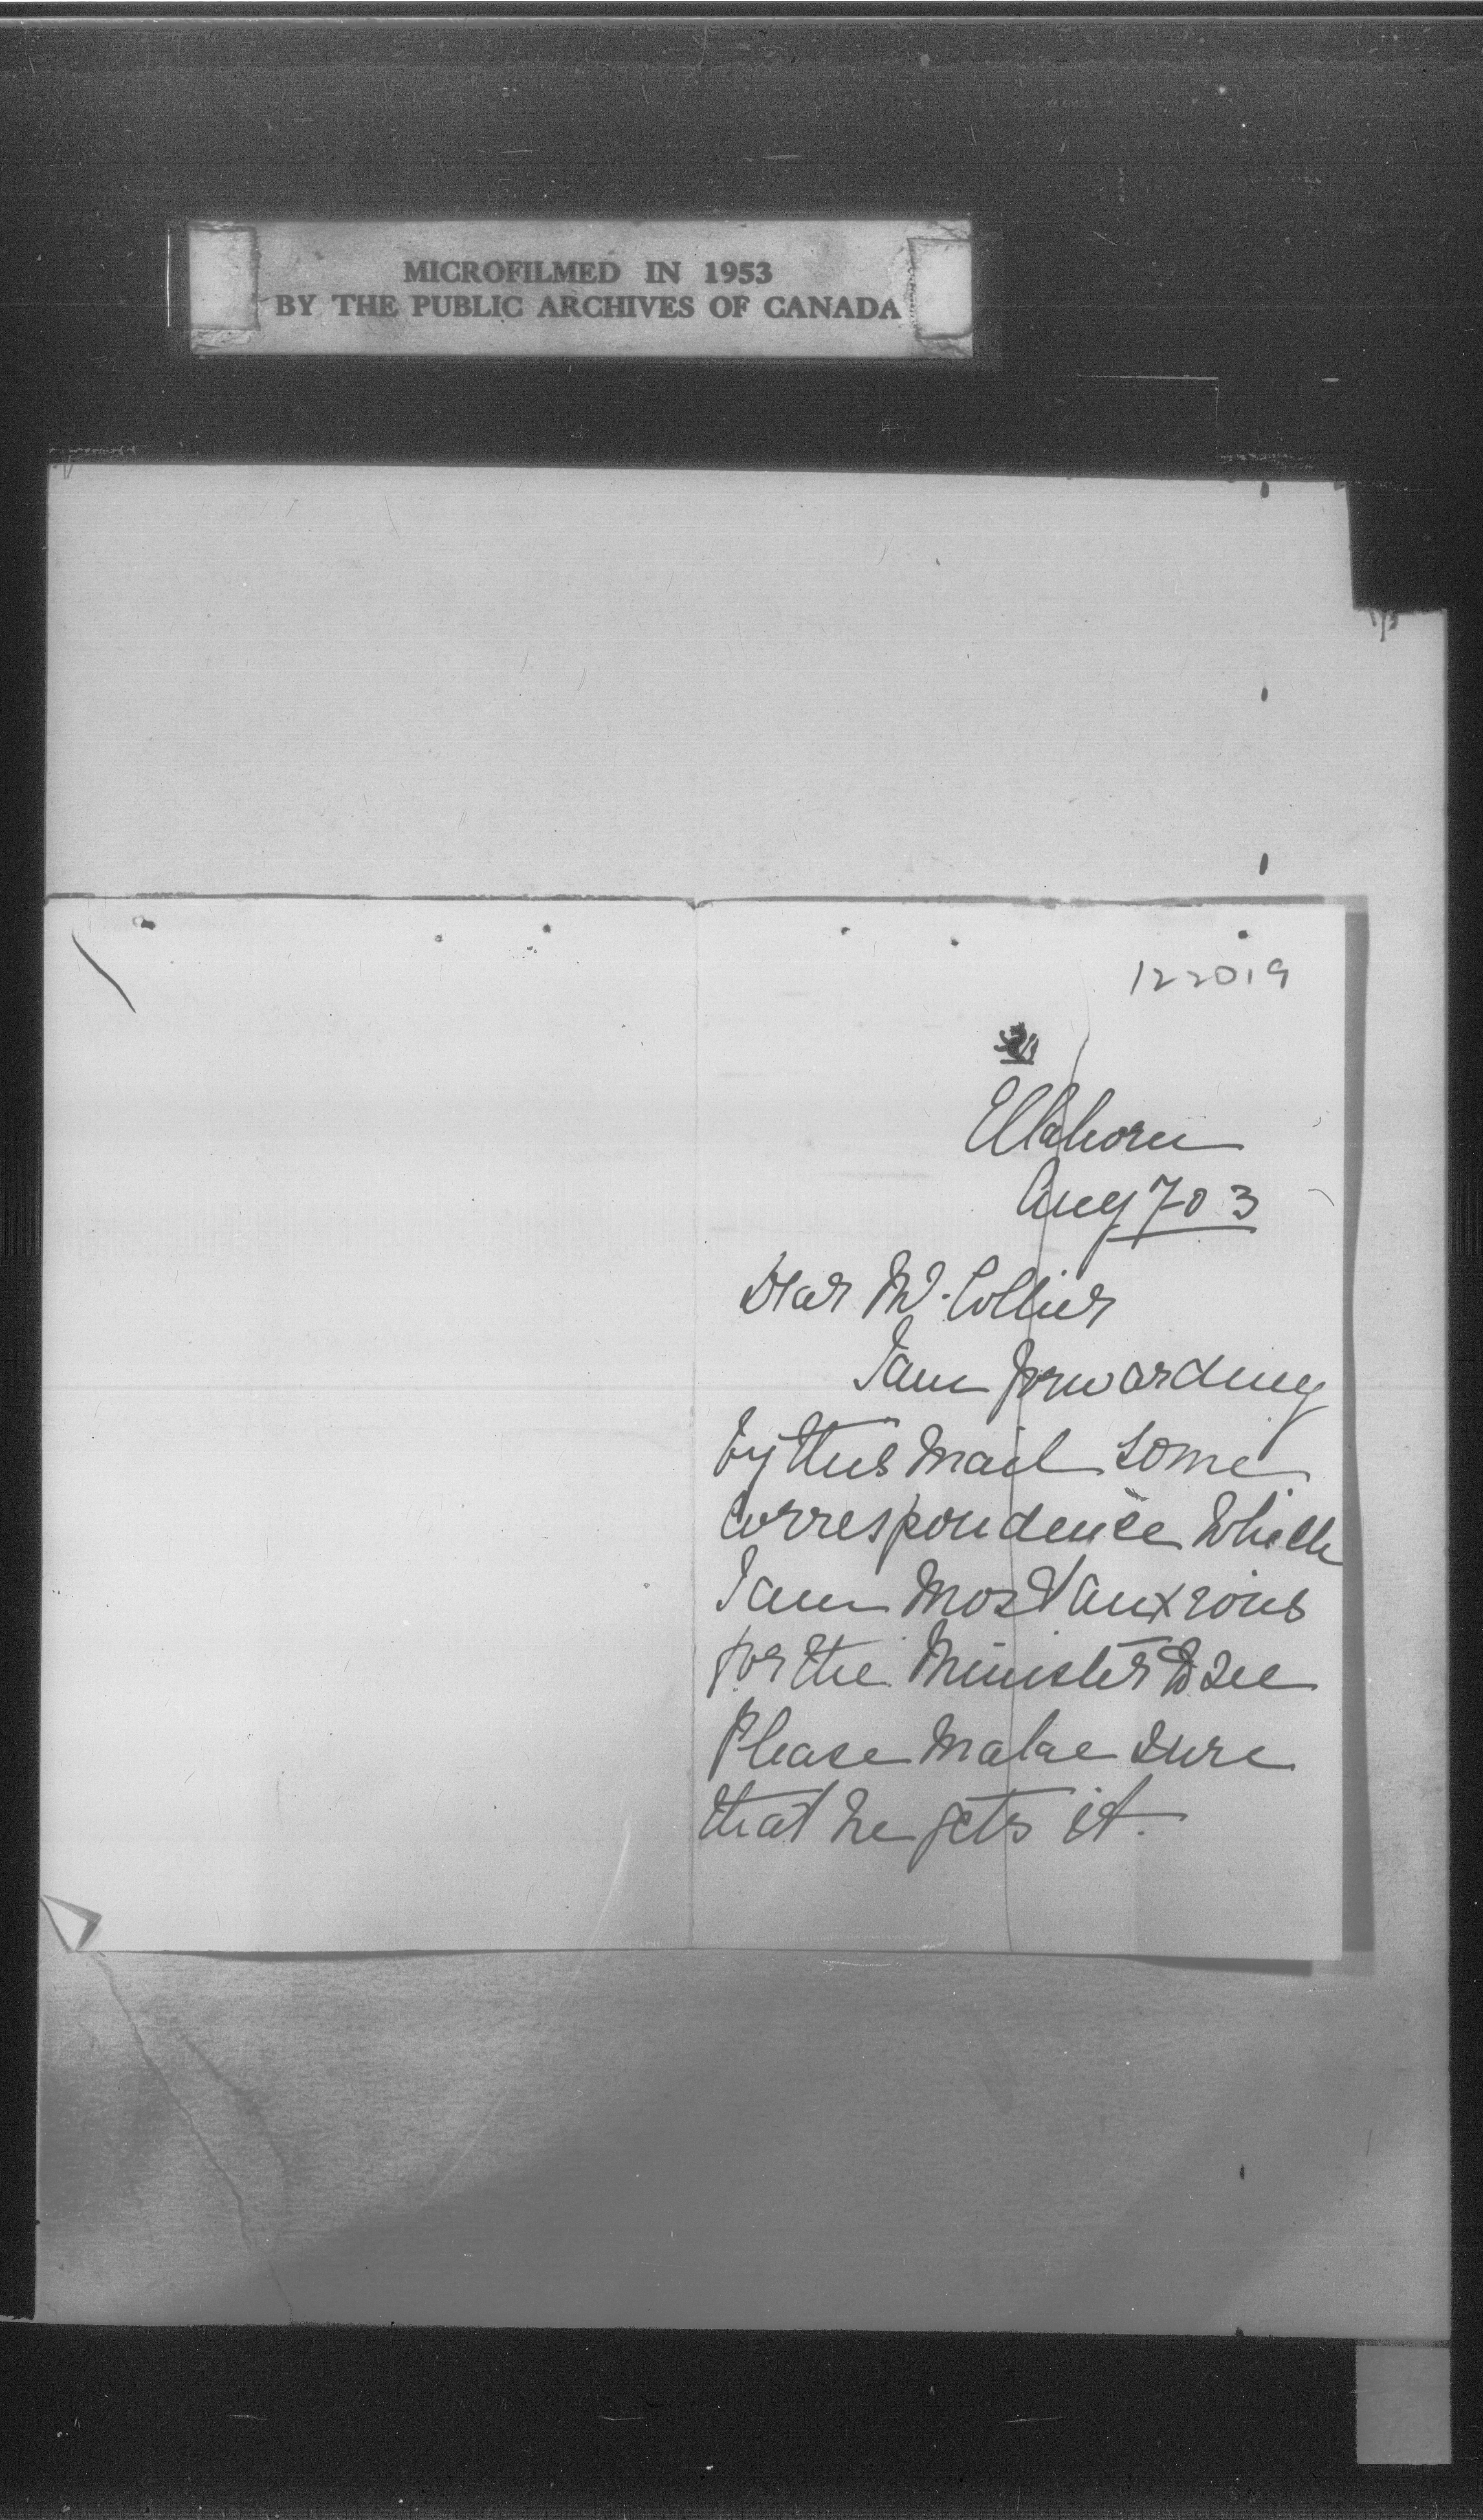 MICROFILMED IN 1953
BY THE PUBLIC ARCHIVES OF CANADA
122019
Elkhorn
Aug 7 03
Dear Mr. Collier
I am forwarding
by this mail some
correspondence which
I am most anxious
for the Minister to see
Please make sure
that he gets it.